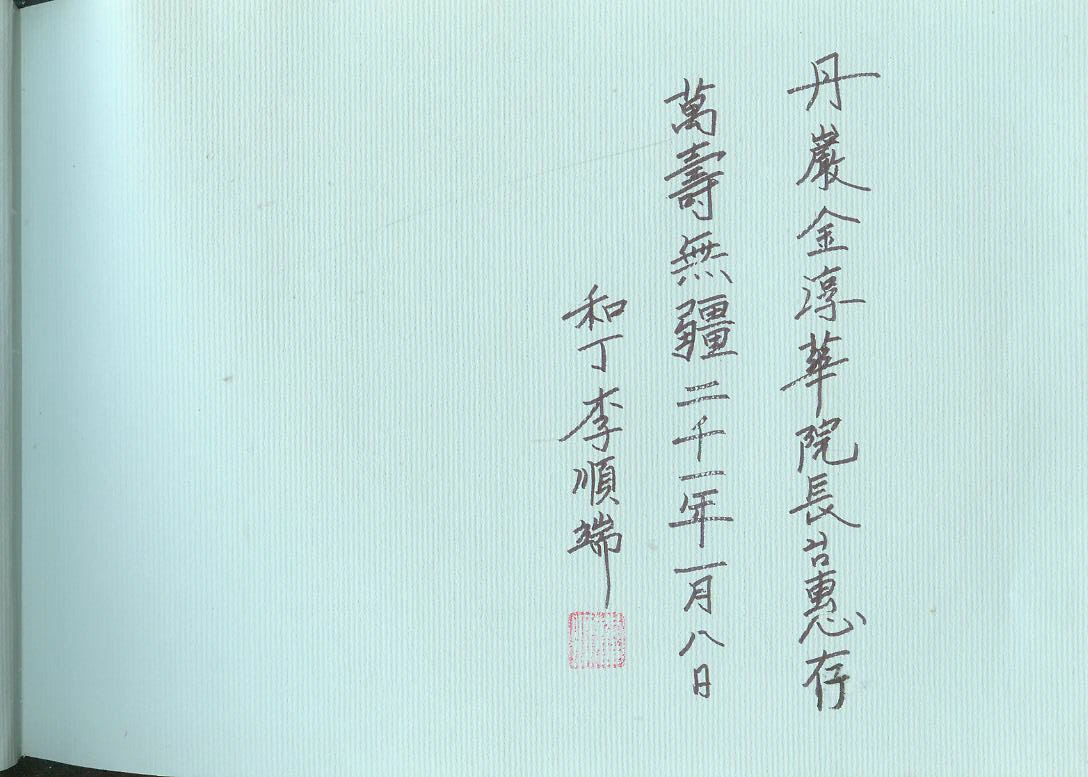 丹巖金淳華院長台惠存
萬壽無疆二千二年一月八日
和丁李順端